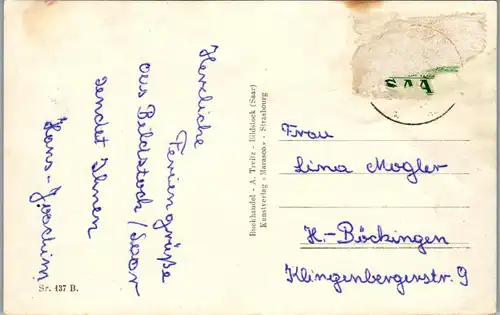 Herzliche
Feriengrüße
aus Bildstock/Saar
sendet Ihnen
Hans-Joachim
Sr. 137 B.
Buchhandel - A. Treitz - Bildstock (Saar)
Kunstverlag «Marasco» - Strasbourg
Frau
Lina Mogler
H.-Böckingen
Klingenbergerstr. 9